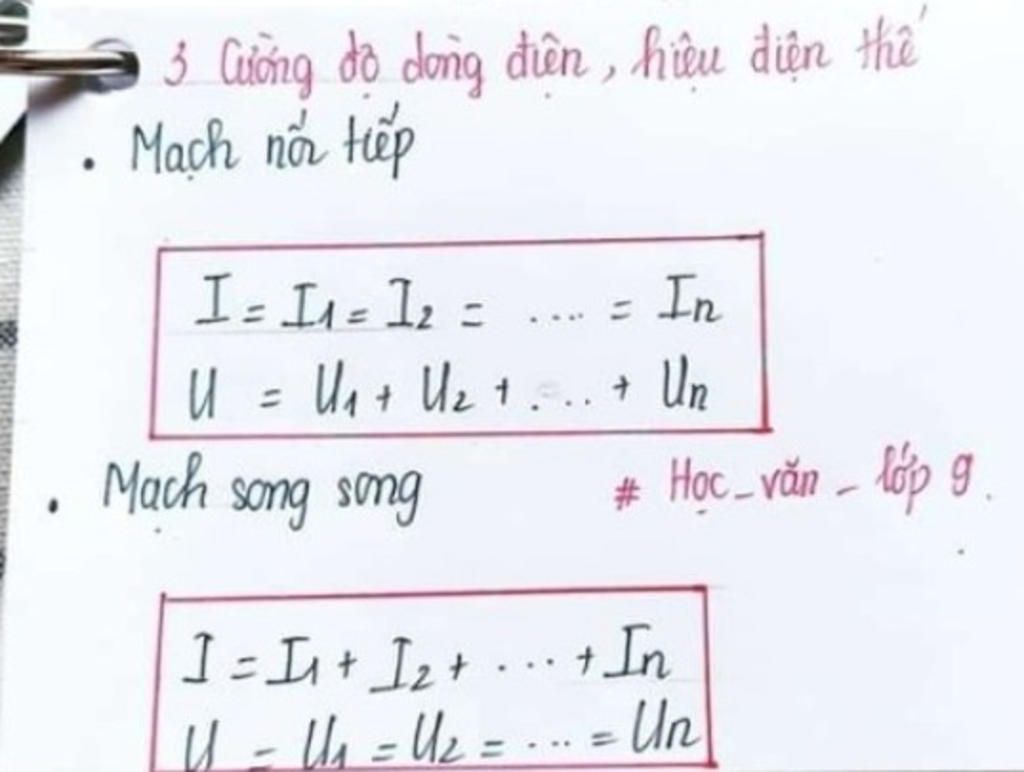 3 Cường độ dòng điện, hiệu điện thế
• Mạch nối tiếp
I = I1 = I2 = .... = In
U = U1 + U2 + .... + Un
• Mạch song song
# Học_văn_lớp 9.
I = I1 + I2 + .... + In
U = U1 = U2 = .... = Un